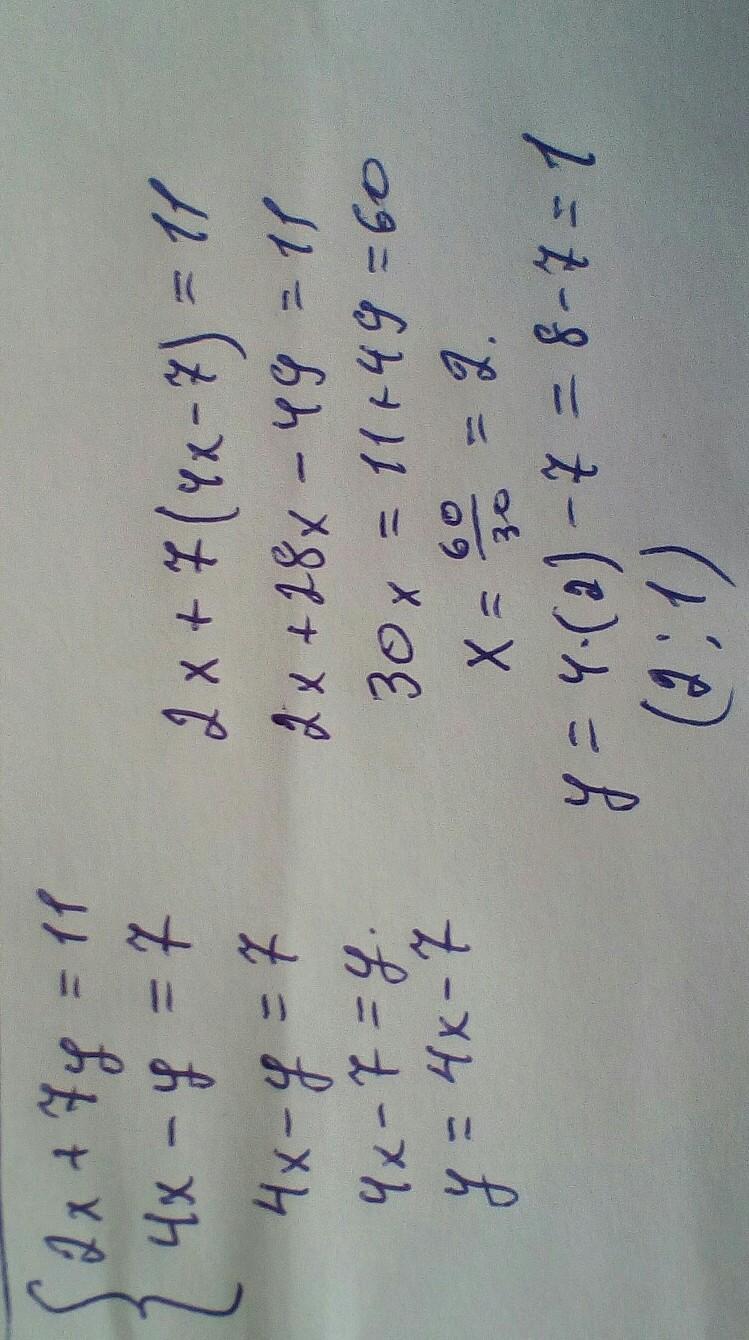 {2x + 7y = 11
4x - y = 7
4x - y = 7
4x - 7 = y.
y = 4x - 7
2x + 7(4x - 7) = 11
2x + 28x - 49 = 11
30x = 11 + 49 = 60
x = 60/30 = 2.
y = 4·(2) - 7 = 8 - 7 = 1
(2; 1)